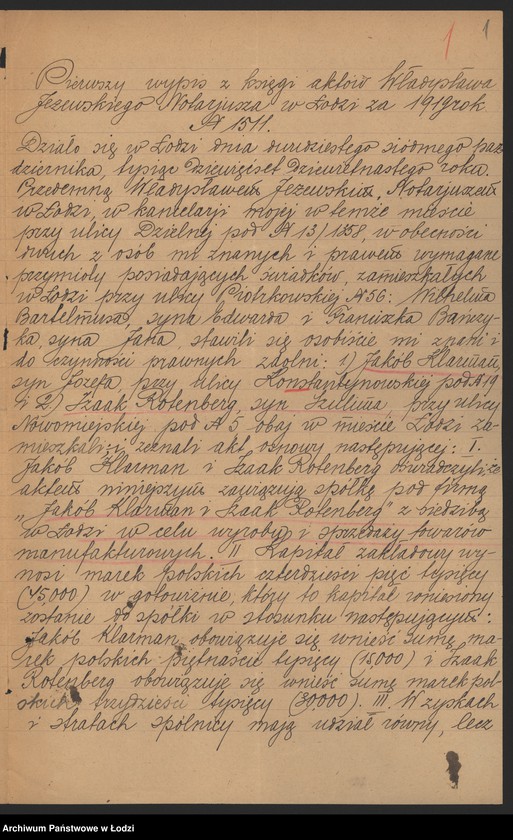 1 1
Pierwszy wypis z księgi aktów Władysława
Jeżewskiego Notarjusza w Łodzi za 1919 rok
№ 1511.
Działo się w Łodzi dnia dwudziestego siódmego paź
dziernika, tysiąc dziewięćset dziewiętnastego roku.
Przedemną Władysławem Jeżewskim, Notarjuszem
w Łodzi, w kancelarji mojej w temże mieście
przy ulicy Dzielnej pod № 13/1358, w obecności
dwóch z osób mi znanych i prawem wymagane
przymioty posiadających świadków, zamieszkałych
w Łodzi przy ulicy Piotrkowskiej № 56: Wilhelma
Bartelmusa, syna Edwarda i Franiszka Bańczy-
ka, syna Jana, stawili się osobiście mi znani i
do czynności prawnych zdolni: 1) Jakób Klarman,
syn Józefa, przy ulicy Konstantynowskiej pod № 19
i 2) Izaak Rotenberg, syn Szulima, przy ulicy
Nowomiejskiej pod № 5 obaj w mieście Łodzi za-
mieszkali i zeznali akt osnowy następującej: I.
Jakób Klarman i Izaak Rotenberg oświadczyli że
aktem niniejszym zawiązują spółkę pod firmą
„Jakób Klarman i Izaak Rotenberg" z siedzibą
w Łodzi w celu wyrobu i sprzedaży towarów
manufakturowych. II Kapitał zakładowy wy-
nosi marek polskich czterdzieści pięć tysięcy
(45,000) w gotowiźnie, który to kapitał wniesiony
zostanie do spółki w stosunku następującym:
Jakób Klarman obowiązuje się wnieść sumę ma-
rek polskich piętnaście tysięcy (15,000) i Izaak
Rotenberg obowiązuje się wnieść sumę marek pol-
skich trzydzieści tysięcy (30,000). III. W zyskach
i stratach spólnicy mają udział równy, lecz
Archiwum Państwowe w Łodzi